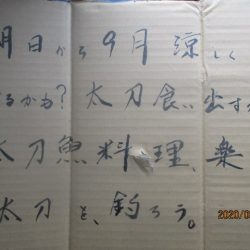 明日から9月 涼しく
なるかも？太刀食い出す
太刀魚料理、楽
太刀を、釣ろう。
2020/0